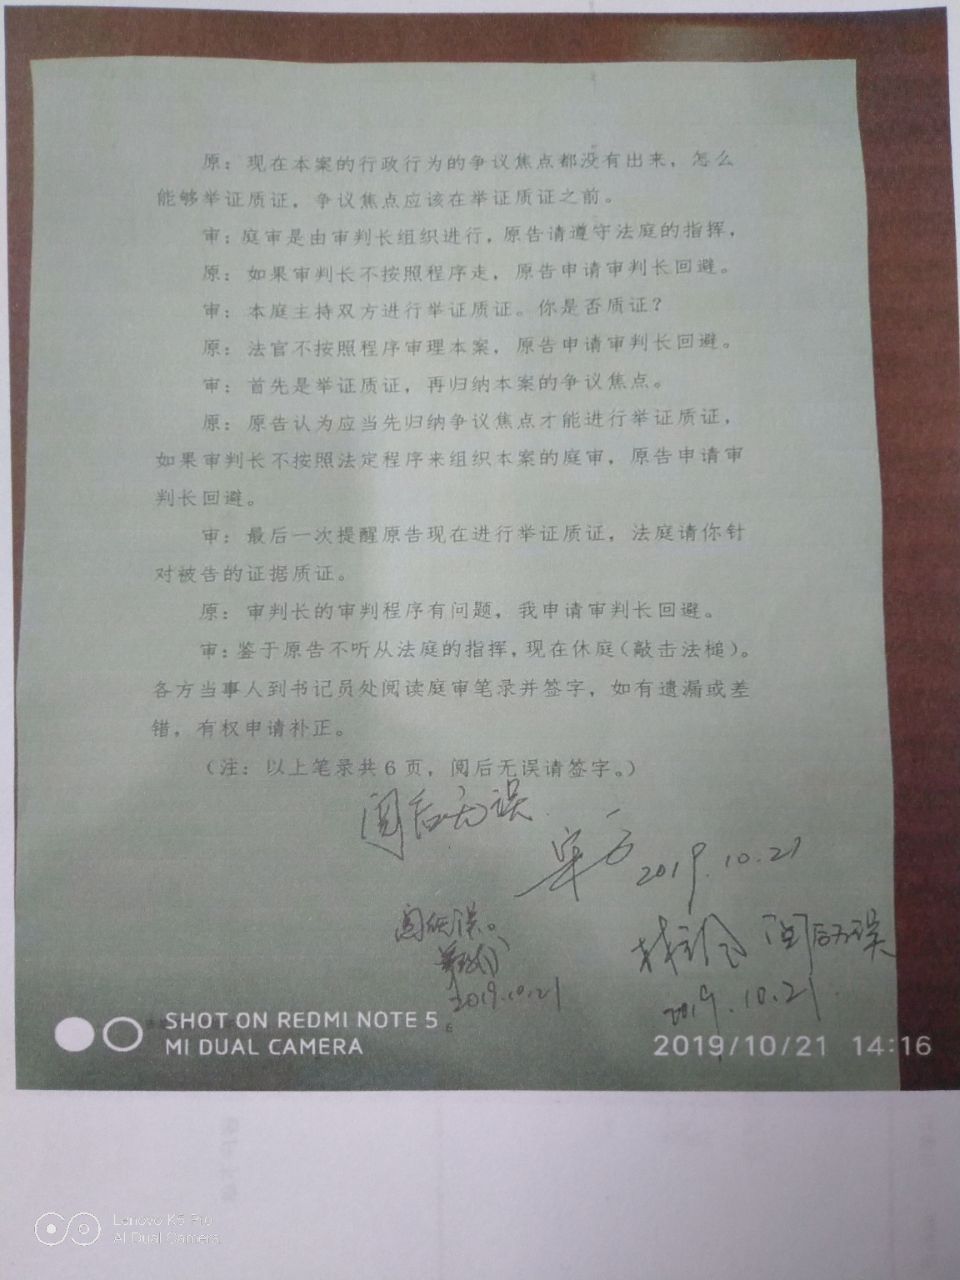 原：现在本案的行政行为的争议焦点都没有出来，怎么
能够举证质证，争议焦点应该在举证质证之前。
审：庭审是由审判长组织进行，原告请遵守法庭的指挥，
原：如果审判长不按照程序走，原告申请审判长回避。
审：本庭主持双方进行举证质证。你是否质证？
原：法官不按照程序审理本案，原告申请审判长回避。
审：首先是举证质证，再归纳本案的争议焦点。
原：原告认为应当先归纳争议焦点才能进行举证质证，
如果审判长不按照法定程序来组织本案的庭审，原告申请审
判长回避。
审：最后一次提醒原告现在进行举证质证，法庭请你针
对被告的证据质证。
原：审判长的审判程序有问题，我申请审判长回避。
审：鉴于原告不听从法庭的指挥，现在休庭（敲击法槌）。
各方当事人到书记员处阅读庭审笔录并签字，如有遗漏或差
错，有权申请补正。
（注：以上笔录共6页，阅后无误请签字。）
阅后无误
2019.10.21
阅后无误
2019.10.21
2019.10.21
6
SHOT ON REDMI NOTE 5
MI DUAL CAMERA
2019/10/21 14:16
Lenovo K5 Pro
AI Dual Camera